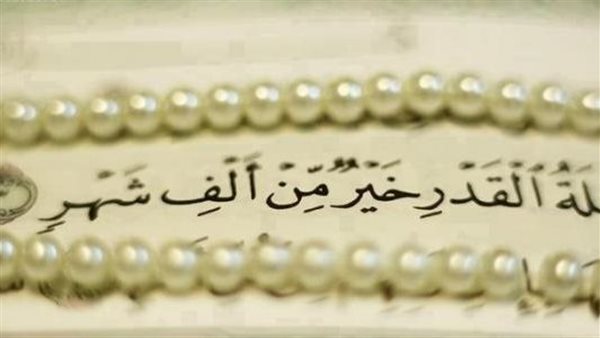 لَةُ ٱلْقَدْرِ خَيْرٌ مِّنْ أَلْفِ شَهْرٍ